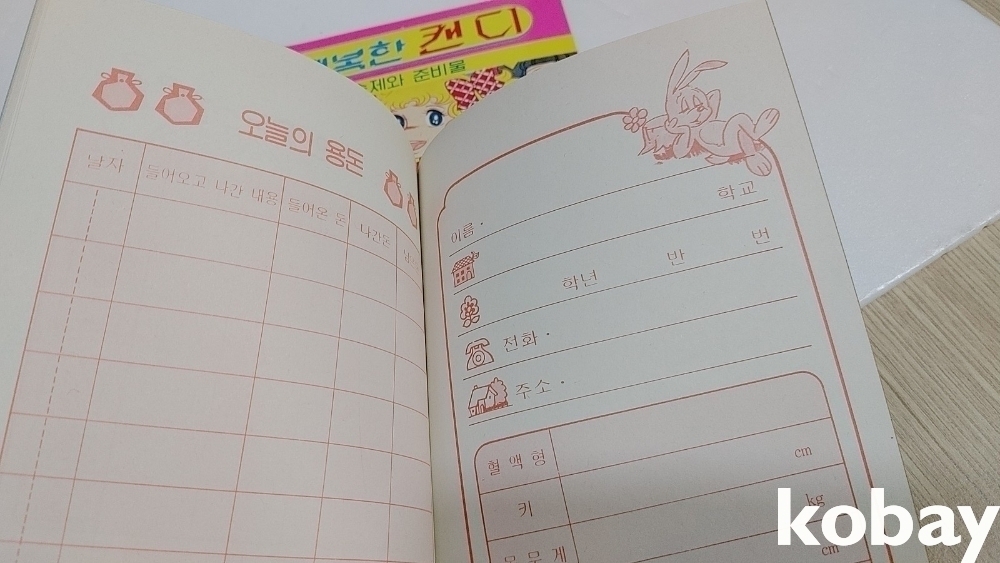 캔디
준비물
오늘의 용돈
날자 들어오고 나간 내용 들어온 돈 나간돈
이름·
학교
학년 반 번
전화·
주소·
혈액형 cm
키 kg
몸무게 cm
kobay